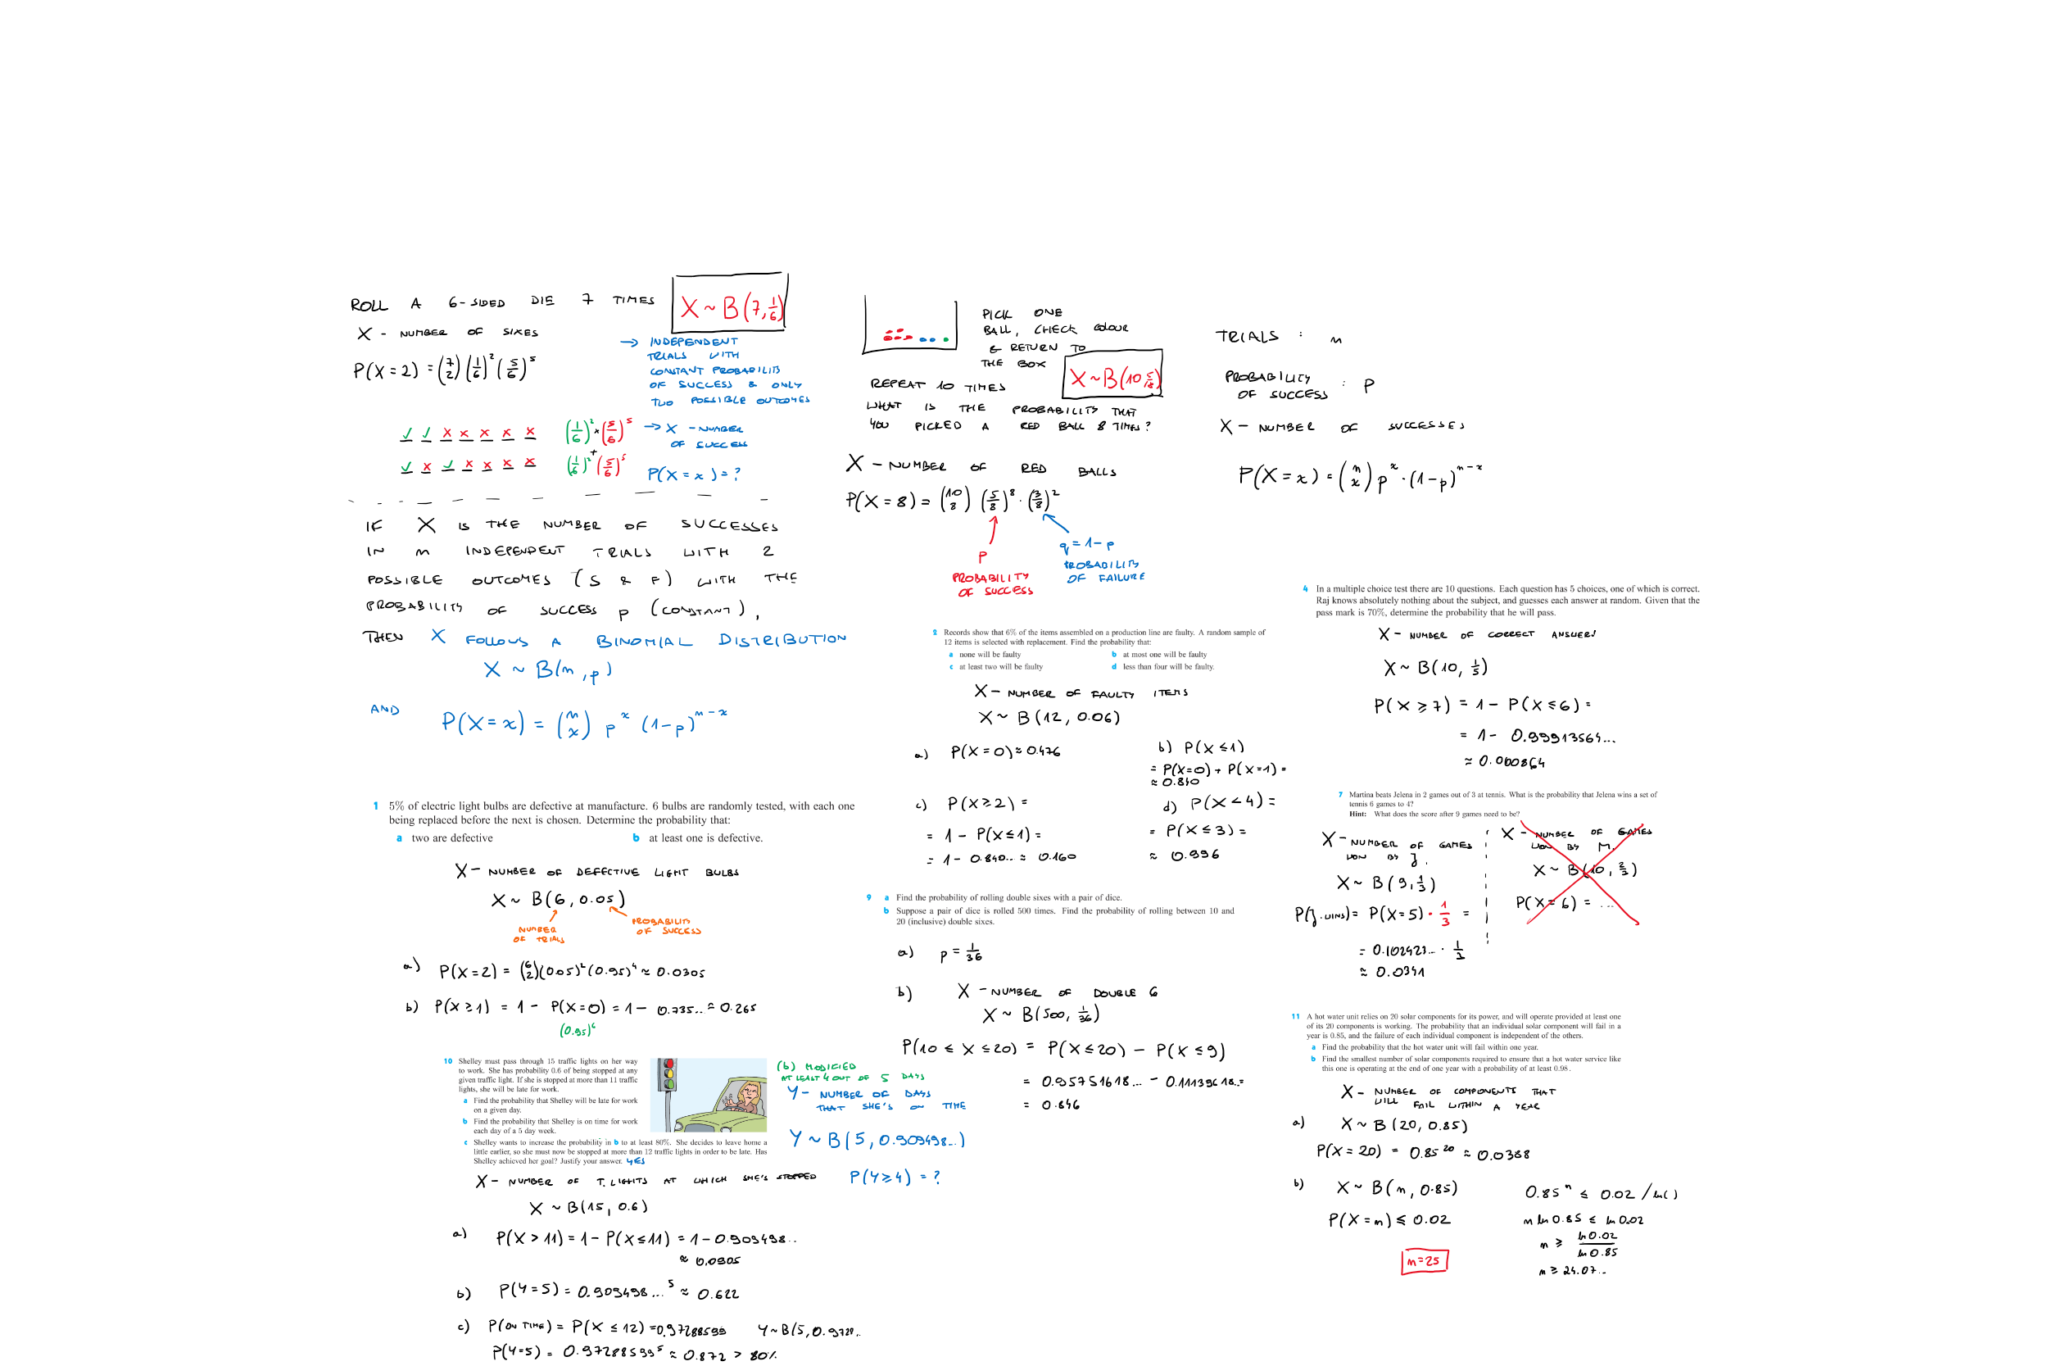 ROLL A 6-SIDED DIE 7 TIMES
X ~ B(7, 1/6)
X - NUMBER OF SIXES
P(X=2) = (7 2) (1/6)^2 (5/6)^5
→ INDEPENDENT
TRIALS WITH
CONSTANT PROBABILITY
OF SUCCESS & ONLY
TWO POSSIBLE OUTCOMES
✓ ✓ x x x x x (1/6)^2 · (5/6)^5
+
✓ x ✓ x x x x (1/6)^2 (5/6)^5
→ X - NUMBER
OF SUCCESS
P(X=x) = ?
IF X IS THE NUMBER OF SUCCESSES
IN n INDEPENDENT TRIALS WITH 2
POSSIBLE OUTCOMES (S & F) WITH THE
PROBABILITY OF SUCCESS p (CONSTANT),
THEN X FOLLOWS A BINOMIAL DISTRIBUTION
X ~ B(n, p)
AND P(X=x) = (n x) p^x (1-p)^(n-x)
1 5% of electric light bulbs are defective at manufacture. 6 bulbs are randomly tested, with each one
being replaced before the next is chosen. Determine the probability that:
a two are defective b at least one is defective.
X - NUMBER OF DEFECTIVE LIGHT BULBS
X ~ B(6, 0.05)
NUMBER
OF TRIALS
PROBABILITY
OF SUCCESS
a) P(X=2) = (6 2)(0.05)^2 (0.95)^4 ≈ 0.0305
b) P(X≥1) = 1 - P(X=0) = 1 - 0.735.. ≈ 0.265
(0.95)^6
10 Shelley must pass through 15 traffic lights on her way
to work. She has probability 0.6 of being stopped at any
given traffic light. If she is stopped at more than 11 traffic
lights, she will be late for work.
a Find the probability that Shelley will be late for work
on a given day.
b Find the probability that Shelley is on time for work
each day of a 5 day week.
c Shelley wants to increase the probability in b to at least 80%. She decides to leave home a
little earlier, so she must now be stopped at more than 12 traffic lights in order to be late. Has
Shelley achieved her goal? Justify your answer. YES
(b) MODIFIED
AT LEAST 4 OUT OF 5 DAYS
Y - NUMBER OF DAYS
THAT SHE'S ON TIME
Y ~ B(5, 0.909498...)
P(Y≥4) = ?
X - NUMBER OF T. LIGHTS AT WHICH SHE'S STOPPED
X ~ B(15, 0.6)
a) P(X > 11) = 1 - P(X≤11) = 1 - 0.909498..
≈ 0.0905
b) P(Y=5) = 0.909498...^5 ≈ 0.622
c) P(ON TIME) = P(X ≤ 12) = 0.97288599 Y ~ B(5, 0.9728..
P(Y=5) = 0.97288599^5 ≈ 0.872 > 80%
PICK ONE
BALL, CHECK COLOUR
& RETURN TO
THE BOX
REPEAT 10 TIMES
X ~ B(10 5/8)
WHAT IS THE PROBABILITY THAT
YOU PICKED A RED BALL 8 TIMES?
X - NUMBER OF RED BALLS
P(X=8) = (10 8) (5/8)^8 · (3/8)^2
p
PROBABILITY
OF SUCCESS
q = 1-p
PROBABILITY
OF FAILURE
2 Records show that 6% of the items assembled on a production line are faulty. A random sample of
12 items is selected with replacement. Find the probability that:
a none will be faulty b at most one will be faulty
c at least two will be faulty d less than four will be faulty.
X - NUMBER OF FAULTY ITEMS
X ~ B(12, 0.06)
a) P(X=0) ≈ 0.476
b) P(X≤1)
= P(X=0) + P(X=1) =
≈ 0.840
c) P(X≥2) =
= 1 - P(X≤1) =
= 1 - 0.840.. ≈ 0.160
d) P(X<4) =
= P(X≤3) =
≈ 0.996
9 a Find the probability of rolling double sixes with a pair of dice.
b Suppose a pair of dice is rolled 500 times. Find the probability of rolling between 10 and
20 (inclusive) double sixes.
a) p = 1/36
b) X - NUMBER OF DOUBLE 6
X ~ B(500, 1/36)
P(10 ≤ X ≤ 20) = P(X≤20) - P(X≤9)
= 0.95751618... - 0.11139618..=
= 0.846
TRIALS : n
PROBABILITY
OF SUCCESS : p
X - NUMBER OF SUCCESSES
P(X=x) = (n x) p^x · (1-p)^(n-x)
4 In a multiple choice test there are 10 questions. Each question has 5 choices, one of which is correct.
Raj knows absolutely nothing about the subject, and guesses each answer at random. Given that the
pass mark is 70%, determine the probability that he will pass.
X - NUMBER OF CORRECT ANSWERS
X ~ B(10, 1/5)
P(X ≥ 7) = 1 - P(X ≤ 6) =
= 1 - 0.99913564...
≈ 0.000864
7 Martina beats Jelena in 2 games out of 3 at tennis. What is the probability that Jelena wins a set of
tennis 6 games to 4?
Hint: What does the score after 9 games need to be?
X - NUMBER OF GAMES
WON BY J.
X ~ B(9, 1/3)
P(J. WINS) = P(X=5) · 1/3 =
= 0.102423... · 1/3
≈ 0.0341
X - NUMBER OF GAMES
WON BY M.
X ~ B(10, 2/3)
P(X=6) = ...
11 A hot water unit relies on 20 solar components for its power, and will operate provided at least one
of its 20 components is working. The probability that an individual solar component will fail in a
year is 0.85, and the failure of each individual component is independent of the others.
a Find the probability that the hot water unit will fail within one year.
b Find the smallest number of solar components required to ensure that a hot water service like
this one is operating at the end of one year with a probability of at least 0.98.
X - NUMBER OF COMPONENTS THAT
WILL FAIL WITHIN A YEAR
a) X ~ B(20, 0.85)
P(X=20) = 0.85^20 ≈ 0.0388
b) X ~ B(n, 0.85)
P(X=n) ≤ 0.02
n=25
0.85^n ≤ 0.02 / ln()
n ln 0.85 ≤ ln 0.02
n ≥ ln 0.02 / ln 0.85
n ≥ 24.07..